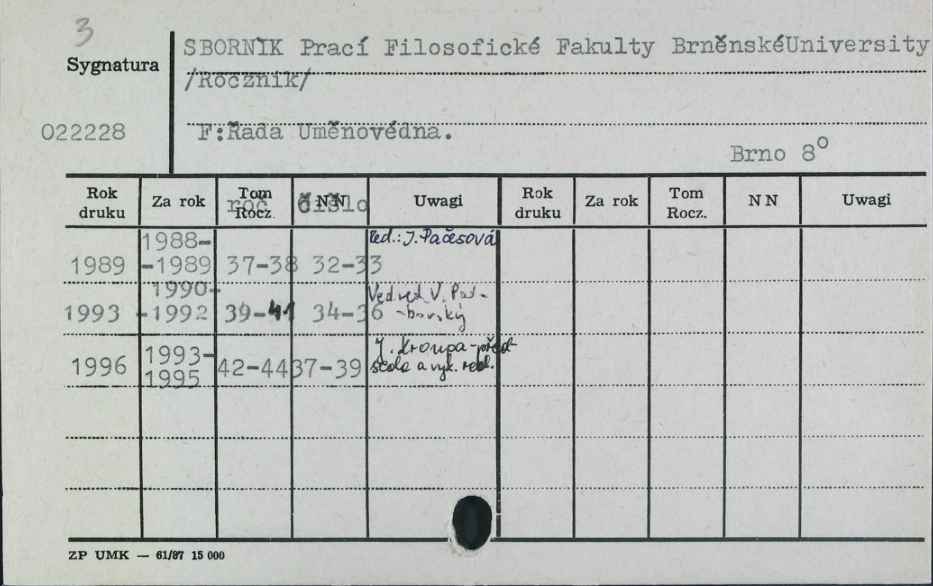 3
Sygnatura
SBORNIK Prací Filosofické Fakulty BrněnskéUniversity
/Rocznik/
022228
F:Řada Uměnovědna.
Brno 8°
Rok druku Za rok Tom Rocz. N N Uwagi Rok druku Za rok Tom Rocz. N N Uwagi
roč číslo
1989 1988--1989 37-38 32-33 red.: J. Pačesová
1993 1990--1992 39-41 34-36 Ved. red. V. Pod-borský
1996 1993-1995 42-44 37-39 J. Kroupa-před-seda a vyk. red.
ZP UMK — 61/87 15 000